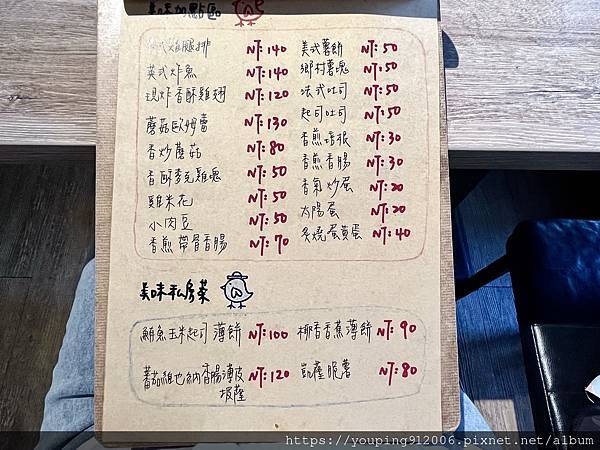 美味加點區
式雞腿排 NT:140
英式炸魚 NT:140
現炸香酥雞翅 NT:120
蘑菇歐姆蕾 NT:130
香炒蘑菇 NT:80
香酥麥克雞塊 NT:50
雞米花 NT:50
小肉豆 NT:50
香煎帶骨香腸 NT:70
美式薯餅 NT:50
鄉村薯塊 NT:50
法式吐司 NT:50
起司吐司 NT:50
香煎培根 NT:30
香煎香腸 NT:30
香氣炒蛋 NT:20
太陽蛋 NT:20
炙燒蛋黃蛋 NT:40
美味私房菜
鮪魚玉米起司薄餅 NT:100
椰香香蕉薄餅 NT:90
蕃茄維也納香腸薄皮披薩 NT:120
凱薩脆薯 NT:80
https://youping912006.pixnet.net/album